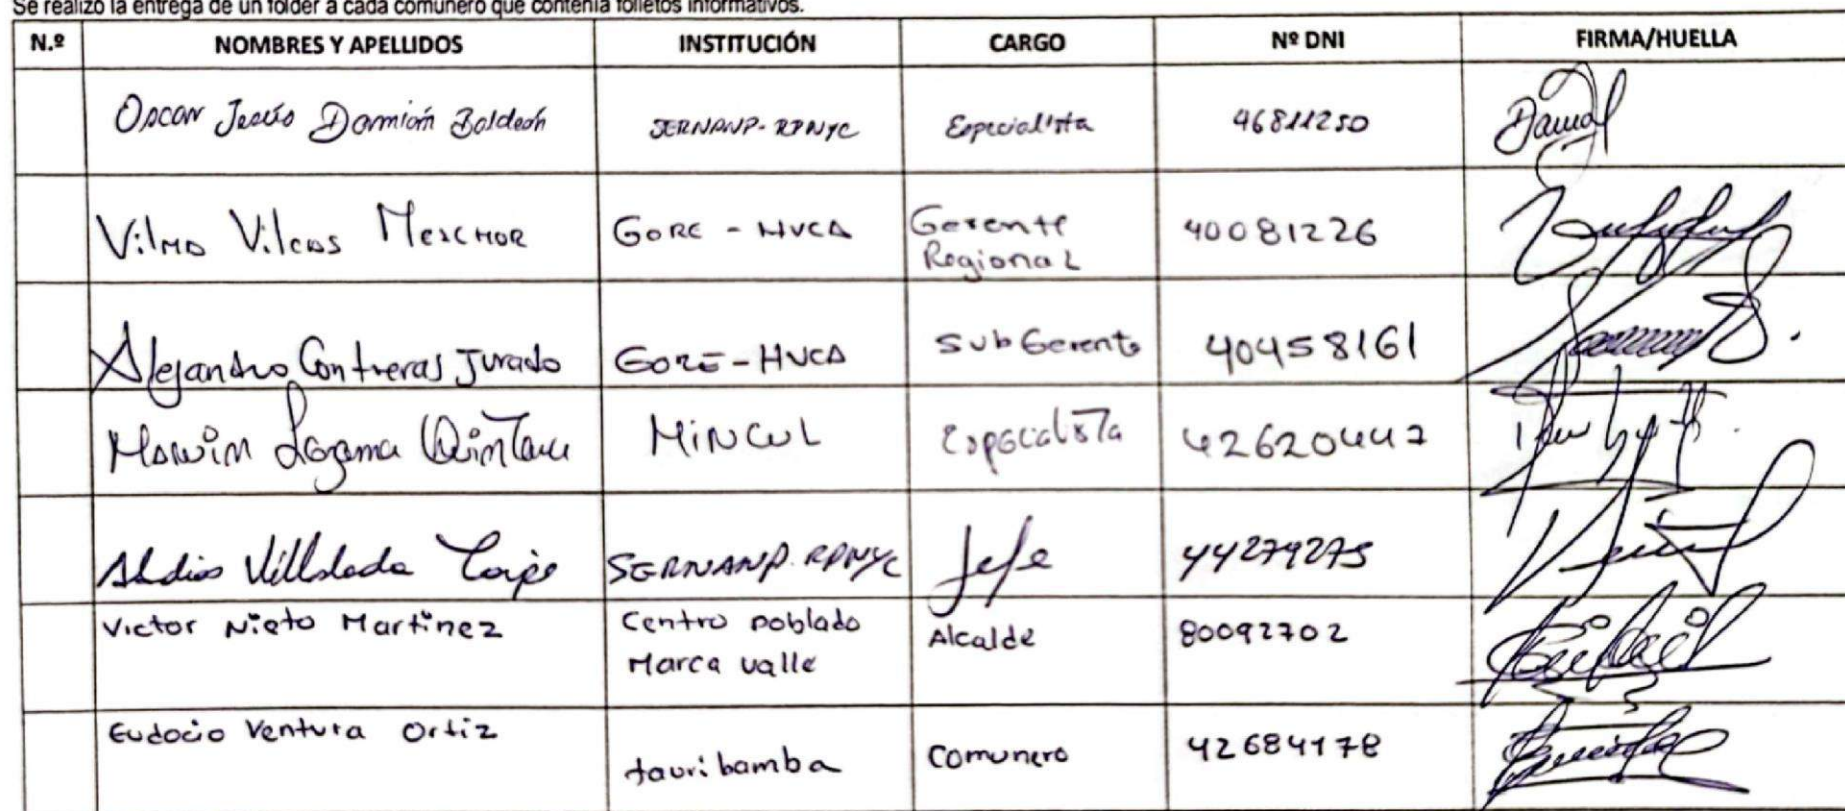 Se realizó la entrega de un folder a cada comunero que contenía folletos informativos.
N.º NOMBRES Y APELLIDOS INSTITUCIÓN CARGO Nº DNI FIRMA/HUELLA
Oscar Jesús Damián Baldeón SERNANP-RPNYC Especialista 46811250
Vilma Vilcas Melchor GORE - HVCA Gerente
Regional 40081226
Alejandro Contreras Jurado GORE-HVCA Sub Gerente 40458161
Marvin Lozama Quintana MINCUL Especialista 42620447
Villalada SERNANP.RPNYC Jefe 44279275
Victor Nieto Martinez Centro poblado
Marca valle Alcalde 80092702
Eudocio Ventura Ortiz tauribamba Comunero 42684178